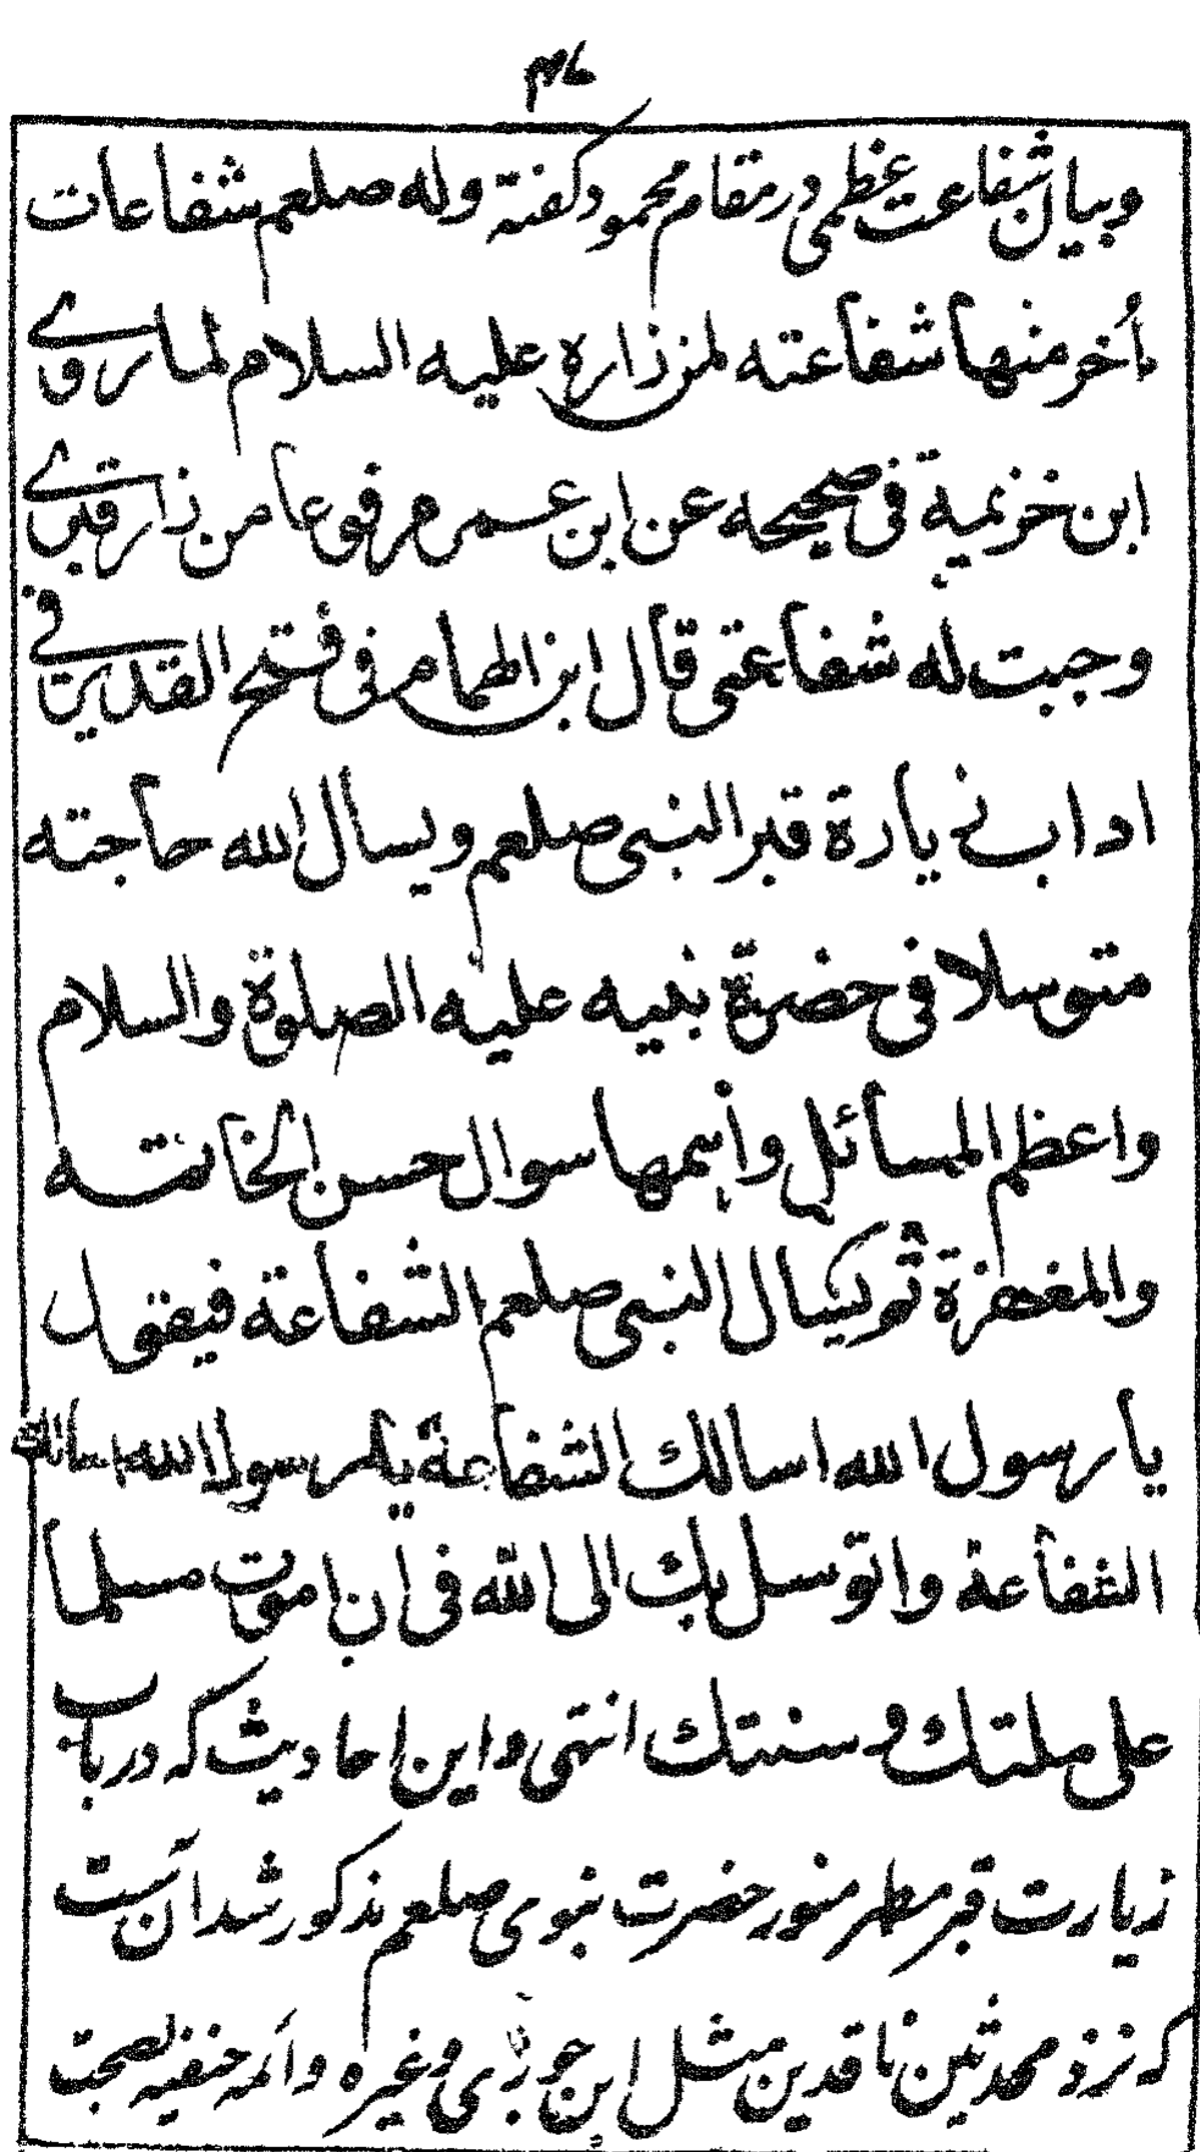 وبیان شفاعت عظمی در مقام محمود کفته وله صلعم شفاعات
اُخر منها شفاعته لمن زاره علیه السلام لما روے
ابن خزیمة فی صحیحه عن ابن عمر مرفوعا من زار قبرے
وجبت له شفاعتی قال ابن الهمام فی فتح القدیر فے
اداب زیارة قبر النبی صلعم ویسال الله حاجته
متوسلا فی حضرة نبیه علیه الصلوة والسلام
واعظم المسائل واهمها سوال حسن الخاتمه
والمغفرة ثم یسال النبی صلعم الشفاعة فیقول
یا رسول الله اسالك الشفاعة یا رسول الله اسالك
الشفاعة واتوسل بك الی الله فی ان اموت مسلما
علی ملتك وسنتك انتهی واین احادیث که در باب
زیارت قبر مطهر منور حضرت نبوی صلعم مذکور شد آنست
که نزد محدثین ناقدین مثل ابن جوزی وغیره وائمه حنفیه بصحت